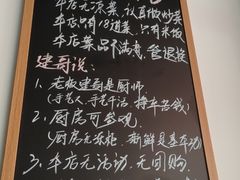 本店无凉菜,认真做炒菜
本店只有18道菜,只有米饭
本店菜品不满意,管退换
建哥说:
1、老板建哥是厨师
(手艺人、手艺干活 挣辛苦钱)
2、厨房可参观
(厨房无冻柜、新鲜是基本功)
3、本店无活动、无团购